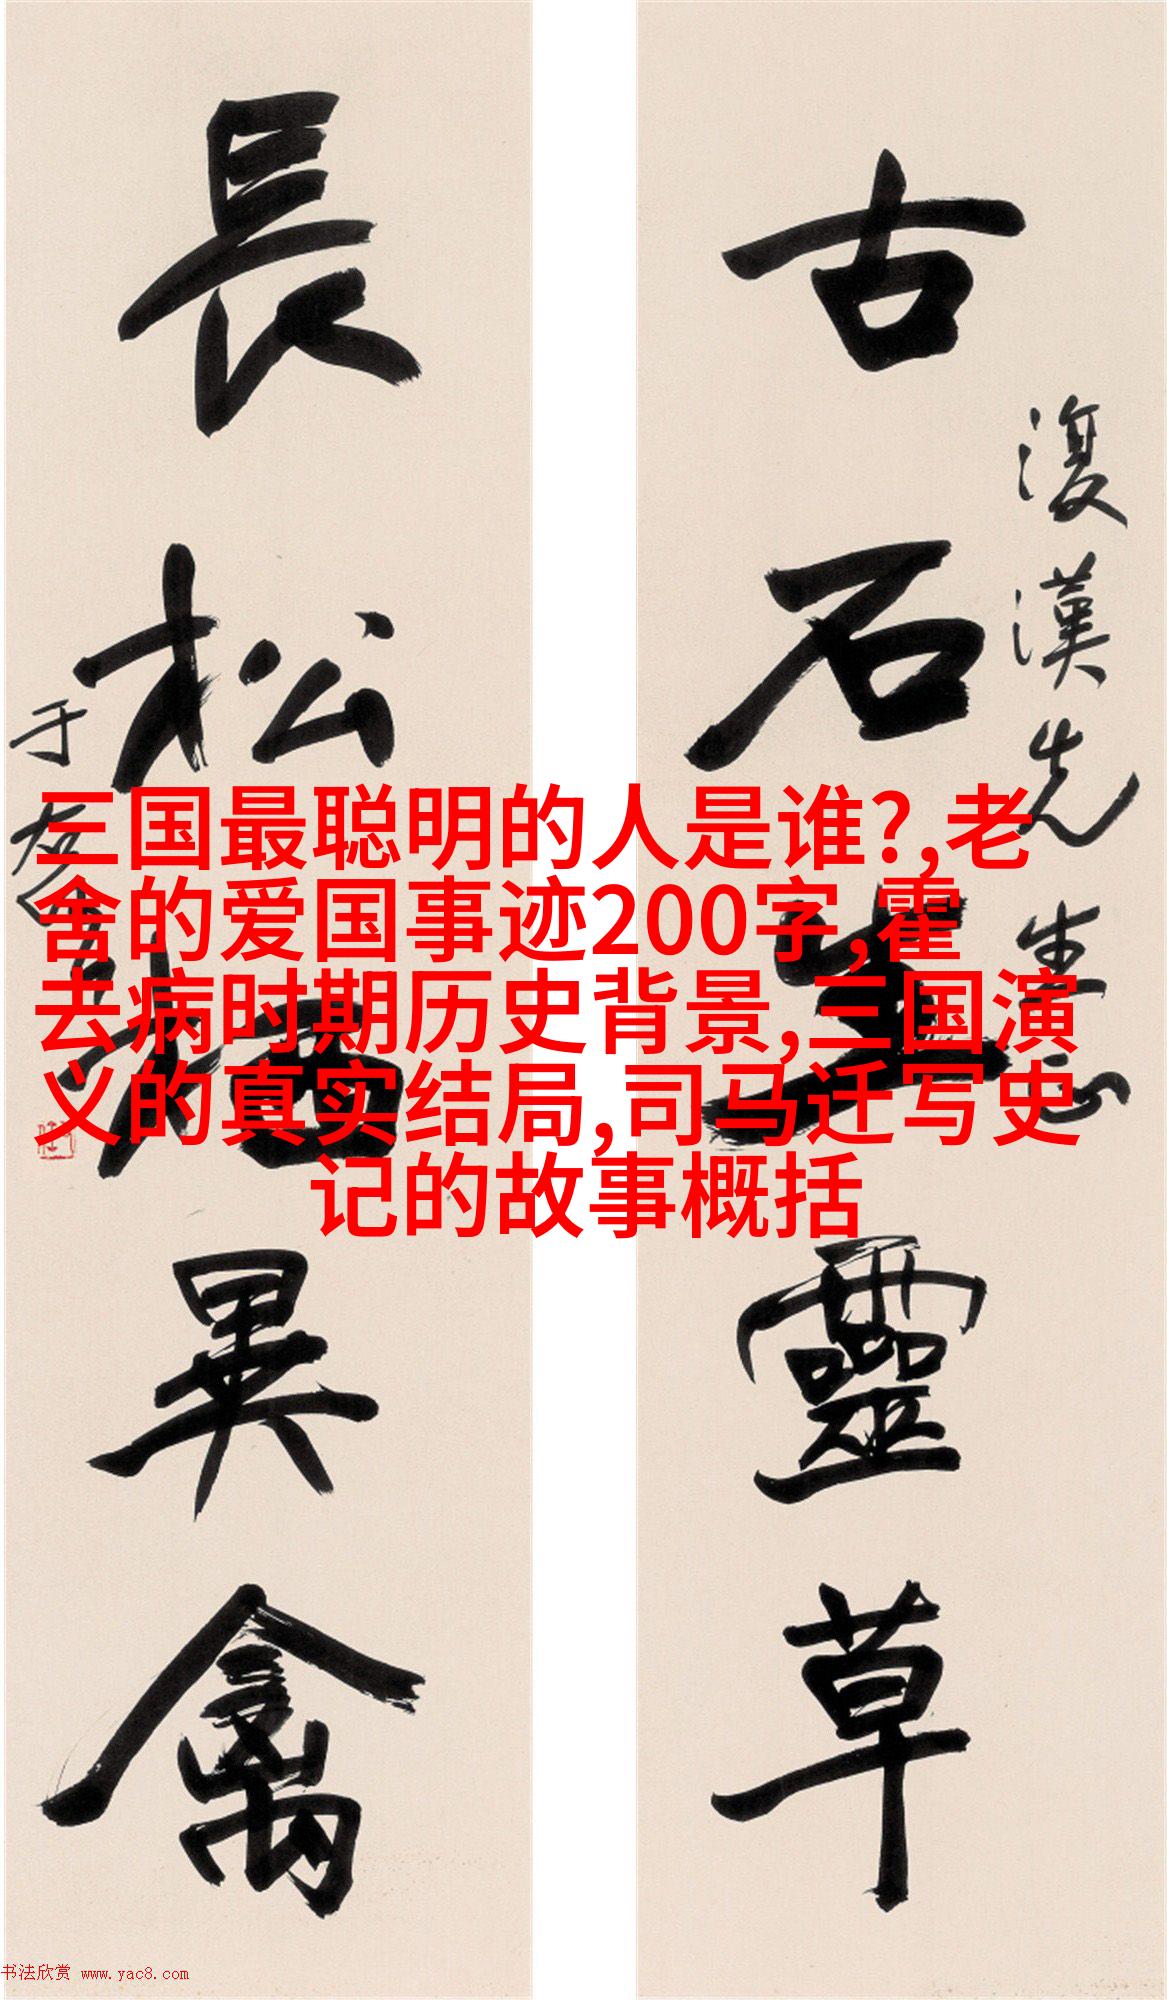 古石生靈草
復漢先生正
長松栖異禽
于右
三国最聪明的人是谁?,老
舍的爱国事迹200字,霍
去病时期历史背景,三国演
义的真实结局,司马迁写史
记的故事概括
书法欣赏 www.yac8.com